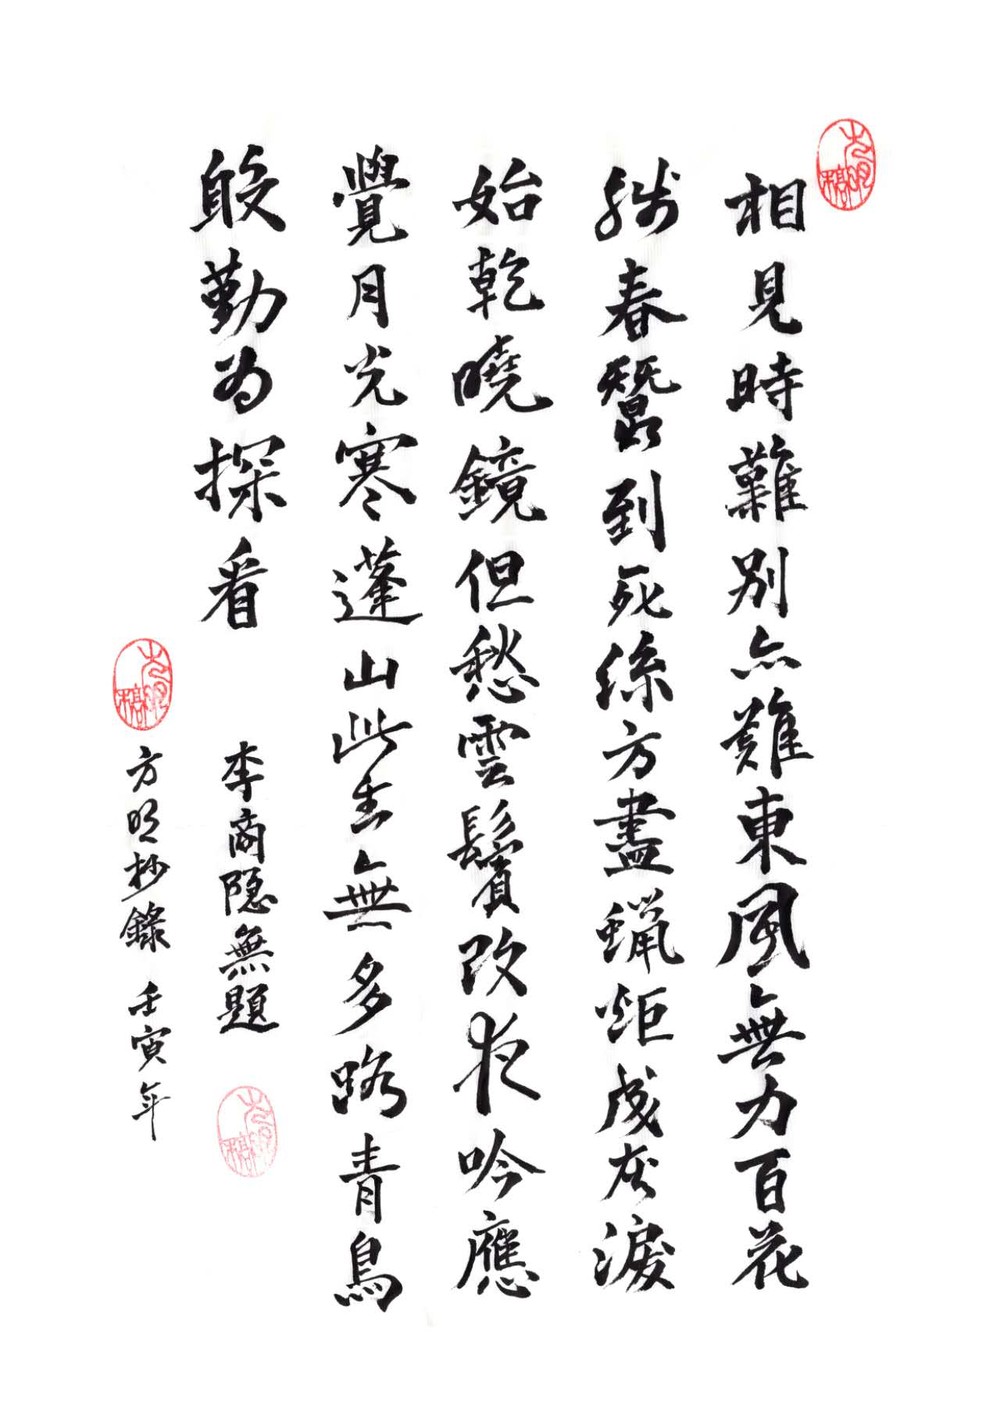 相見時難別亦難東風無力百花
殘春蠶到死絲方盡蠟炬成灰淚
始乾曉鏡但愁雲鬢改夜吟應
覺月光寒蓬山此去無多路青鳥
殷勤為探看
李商隐無題
方明抄錄 壬寅年